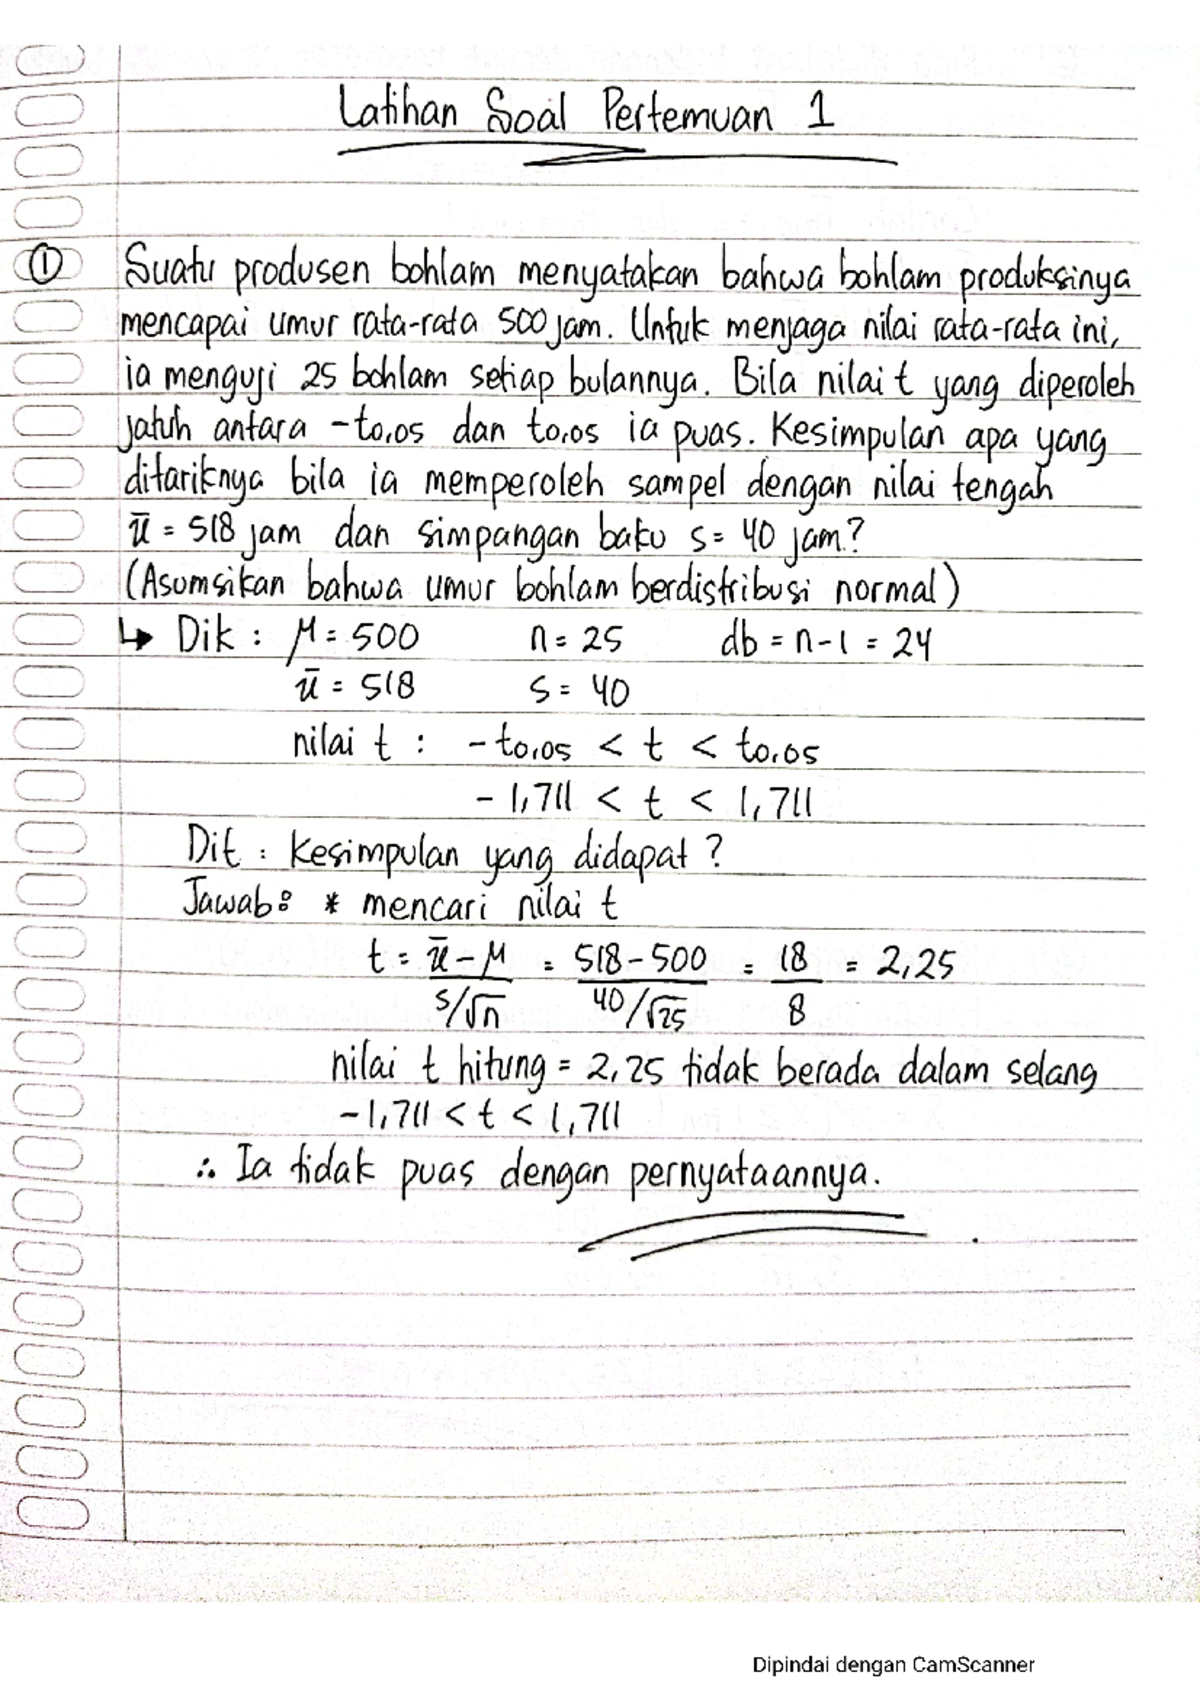 Latihan Soal Pertemuan 1
① Suatu produsen bohlam menyatakan bahwa bohlam produksinya
mencapai umur rata-rata 500 jam. Untuk menjaga nilai rata-rata ini,
ia menguji 25 bohlam setiap bulannya. Bila nilai t yang diperoleh
jatuh antara -t0,05 dan t0,05 ia puas. Kesimpulan apa yang
ditariknya bila ia memperoleh sampel dengan nilai tengah
x̄ = 518 jam dan simpangan baku s = 40 jam?
(Asumsikan bahwa umur bohlam berdistribusi normal)
↳ Dik : μ = 500 n = 25 db = n-1 = 24
x̄ = 518 s = 40
nilai t : -t0,05 < t < t0,05
-1,711 < t < 1,711
Dit : Kesimpulan yang didapat ?
Jawab: * mencari nilai t
t = x̄ - μ / s/√n = 518 - 500 / 40/√25 = 18 / 8 = 2,25
nilai t hitung = 2,25 tidak berada dalam selang
-1,711 < t < 1,711
∴ Ia tidak puas dengan pernyataannya.
Dipindai dengan CamScanner